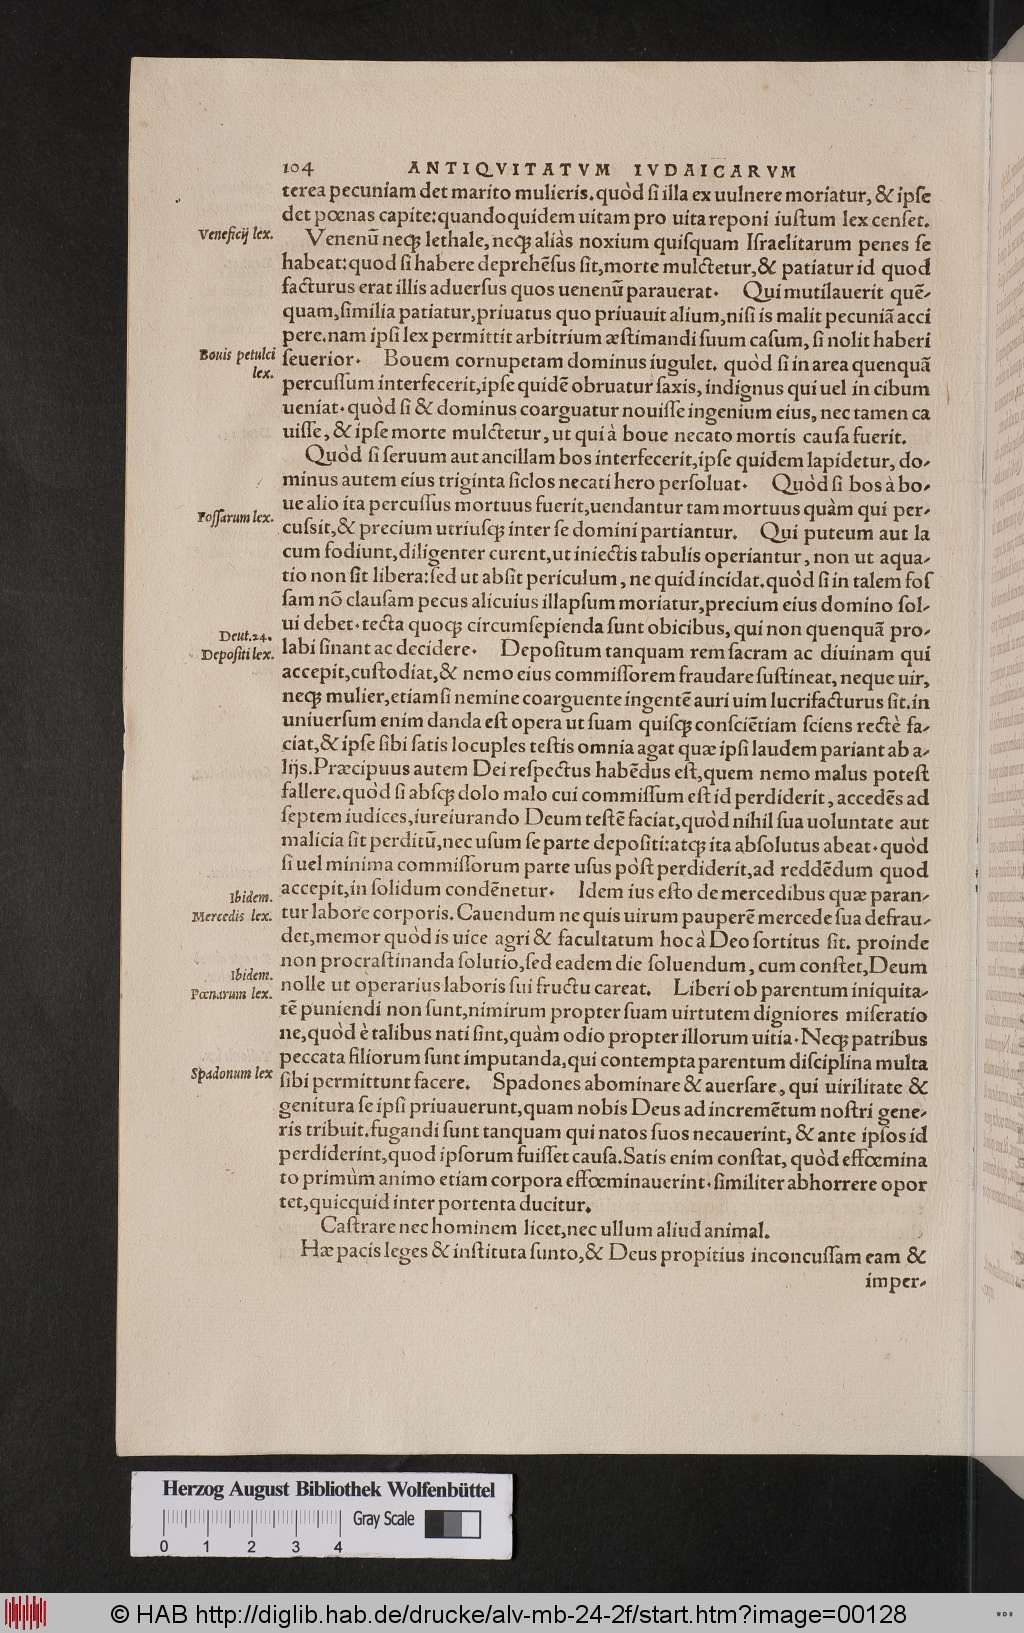 104 ANTIQVITATVM IVDAICARVM
terea pecuniam det marito mulieris. quòd si illa ex uulnere moriatur, & ipse
det pœnas capite: quandoquidem uitam pro uita reponi iustum lex censet.
Veneficij lex.
Venenū neq; lethale, neq; aliàs noxium quisquam Israelitarum penes se
habeat: quod si habere deprehẽsus sit, morte mulctetur, & patiatur id quod
facturus erat illis aduersus quos uenenū parauerat. Qui mutilauerit quē-
quam, similia patiatur, priuatus quo priuauit alium, nisi is malit pecuniā acci
pere. nam ipsi lex permittit arbitrium æstimandi suum casum, si nolit haberi
Bouis petulci
lex.
seuerior. Bouem cornupetam dominus iugulet. quòd si in area quenquā
percussum interfecerit, ipse quidē obruatur saxis, indignus qui uel in cibum
ueniat. quòd si & dominus coarguatur nouisse ingenium eius, nec tamen ca
uisse, & ipse morte mulctetur, ut qui à boue necato mortis causa fuerit.
Quòd si seruum aut ancillam bos interfecerit, ipse quidem lapidetur, do-
minus autem eius triginta siclos necati hero persoluat. Quòd si bos à bo-
ue alio ita percussus mortuus fuerit, uendantur tam mortuus quàm qui per-
Fossarum lex.
cussit, & precium utriusq; inter se domini partiantur. Qui puteum aut la
cum fodiunt, diligenter curent, ut iniectis tabulis operiantur, non ut aqua-
tio non sit libera: sed ut absit periculum, ne quid incidat. quòd si in talem fos
sam nō clausam pecus alicuius illapsum moriatur, precium eius domino sol-
ui debet. tecta quoq; circumsepienda sunt obicibus, qui non quenquā pro-
Deut.24.
Depositi lex.
labi sinant ac decidere. Depositum tanquam rem sacram ac diuinam qui
accepit, custodiat, & nemo eius commissorem fraudare sustineat, neque uir,
neq; mulier, etiamsi nemine coarguente ingentē auri uim lucrifacturus sit. in
uniuersum enim danda est opera ut suam quisq; consciētiam sciens rectè fa-
ciat, & ipse sibi satis locuples testis omnia agat quæ ipsi laudem pariant ab a-
lijs. Præcipuus autem Dei respectus habēdus est, quem nemo malus potest
fallere. quòd si absq; dolo malo cui commissum est id perdiderit, accedēs ad
septem iudices, iureiurando Deum testē faciat, quòd nihil sua uoluntate aut
malicia sit perditū, nec usum se parte depositi: atq; ita absolutus abeat. quòd
si uel minima commissorum parte usus pòst perdiderit, ad reddēdum quod
Ibidem.
Mercedis lex.
accepit, in solidum condēnetur. Idem ius esto de mercedibus quæ paran-
tur labore corporis. Cauendum ne quis uirum pauperē mercede sua defrau-
det, memor quòd is uice agri & facultatum hoc à Deo sortitus sit. proinde
non procrastinanda solutio, sed eadem die soluendum, cum constet, Deum
Ibidem.
Pœnarum lex.
nolle ut operarius laboris sui fructu careat. Liberi ob parentum iniquita-
tē puniendi non sunt, nimirum propter suam uirtutem digniores miseratio
ne, quòd è talibus nati sint, quàm odio propter illorum uitia. Neq; patribus
peccata filiorum sunt imputanda, qui contempta parentum disciplina multa
Spadonum lex
sibi permittunt facere. Spadones abominare & auersare, qui uirilitate &
genitura se ipsi priuauerunt, quam nobis Deus ad incremētum nostri gene-
ris tribuit. fugandi sunt tanquam qui natos suos necauerint, & ante ipsos id
perdiderint, quod ipsorum fuisset causa. Satis enim constat, quòd effœmina
to primùm animo etiam corpora effœminauerint. similiter abhorrere opor
tet, quicquid inter portenta ducitur.
Castrare nec hominem licet, nec ullum aliud animal.
Hæ pacis leges & instituta sunto, & Deus propitius inconcussam eam &
imper-
Herzog August Bibliothek Wolfenbüttel
Gray Scale
0 1 2 3 4
© HAB http://diglib.hab.de/drucke/alv-mb-24-2f/start.htm?image=00128